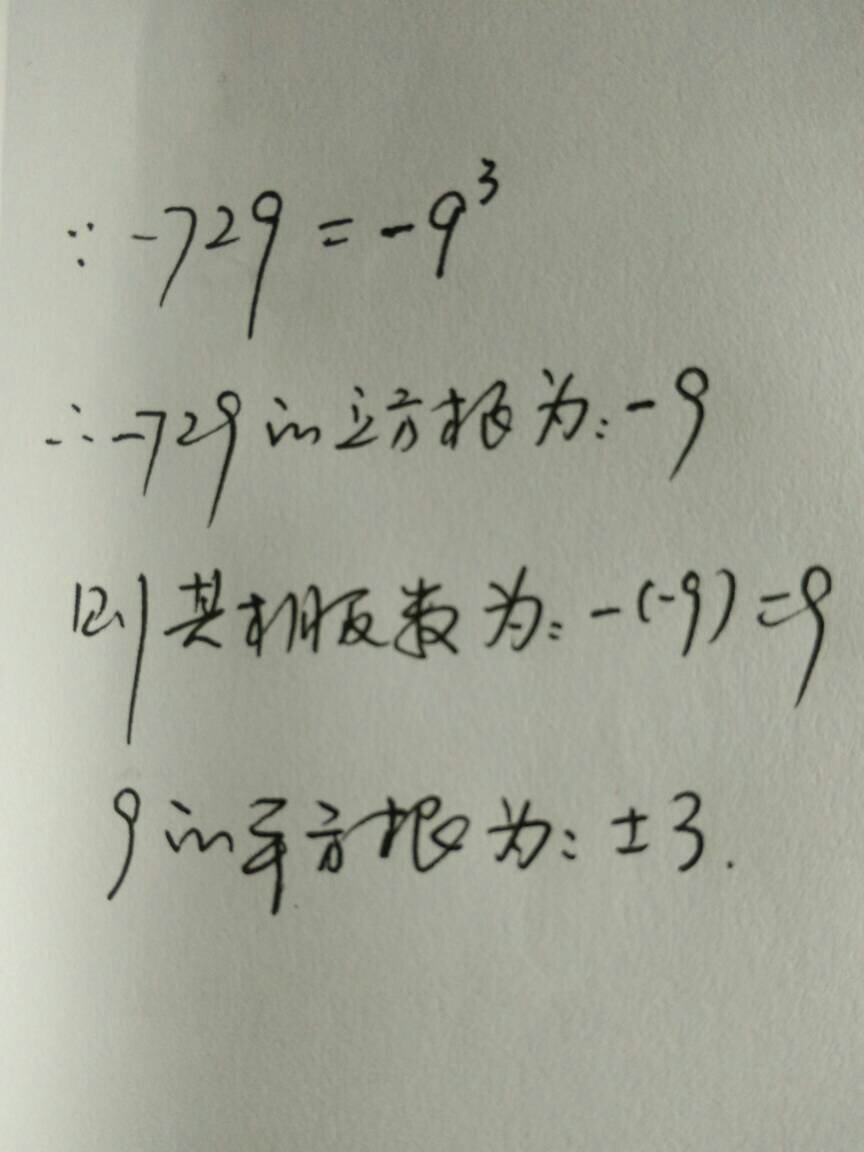 ∵ -729 = -9³
∴ -729的立方根为: -9
则其相反数为: -(-9) = 9
9的平方根为: ±3.